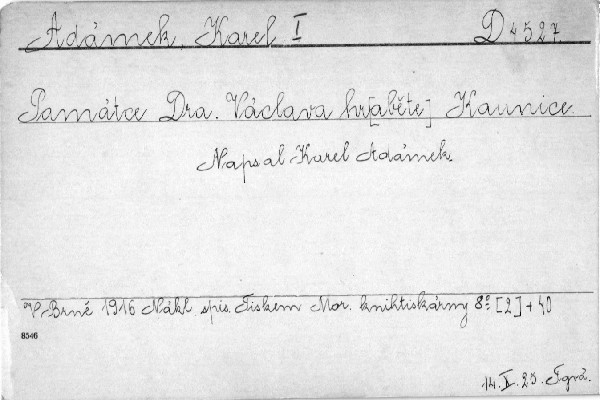 Adámek, Karel I D 4527.
Památce Dra. Václava hr[aběte] Kaunice.
Napsal Karel Adámek.
V Brně 1916 Nákl. spis. Tiskem Mor. knihtiskárny 8° [2] + 40
8546
14. X. 25.